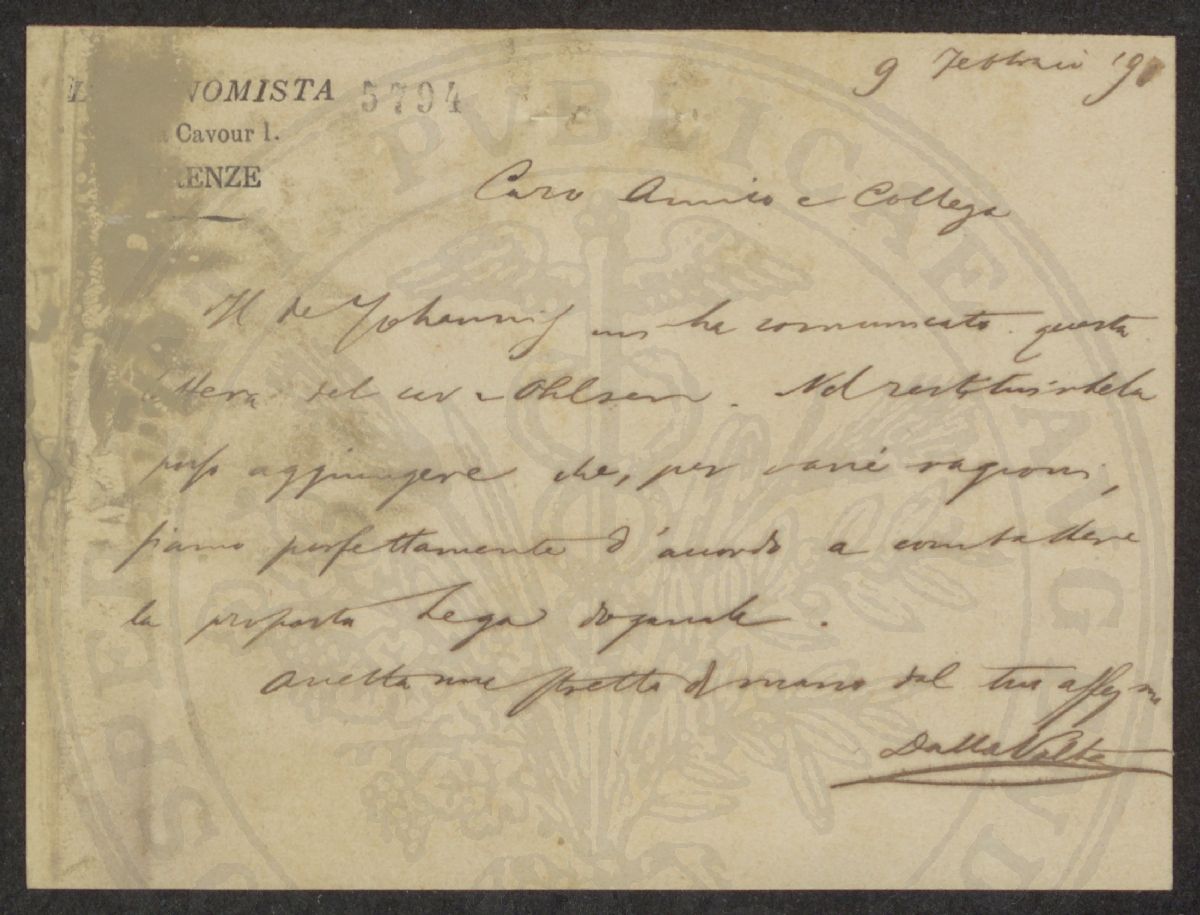 9 Febbraio '9
NOMISTA 5794
Cavour 1.
RENZE
Caro Amico e Collega
Il de Johannis mi ha comunicato questa
lettera del cav Ohlsen. Nel restituirtela
posso aggiungere che, per varie ragioni,
siamo perfettamente d'accordo a combattere
la proposta Lega doganale.
una stretta di mano dal tuo affezmo
Dalla Volta
PVBLICAE